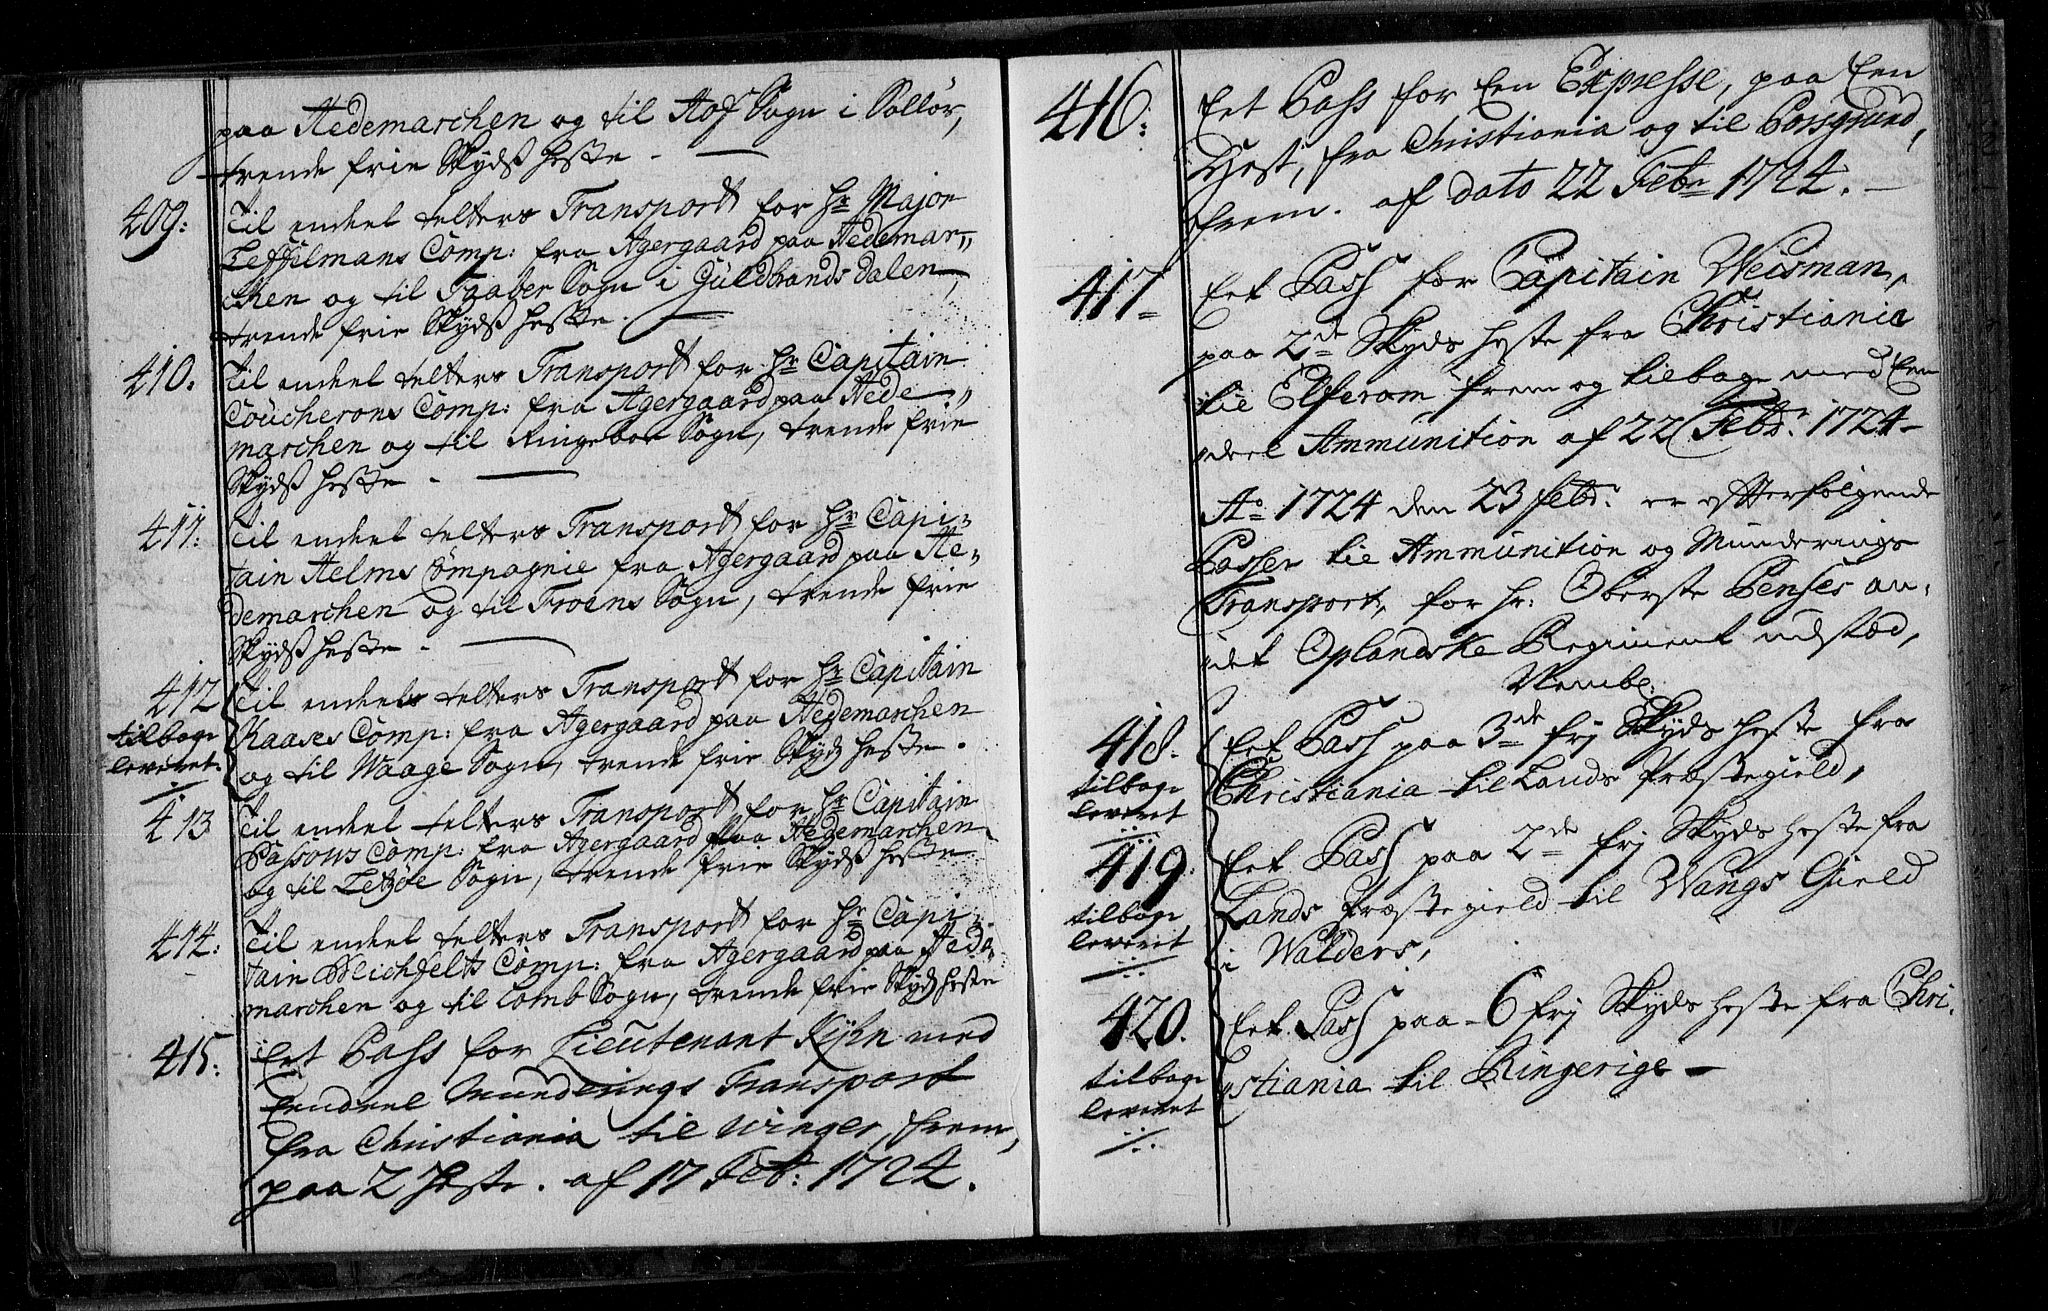 paa Hedemarchen og til Hof Sogn i Sollør,
trende frie Skydsheste. —
409: Til endeel telters Transport for Hr Major
Leffelmans Comp: fra Agergaard paa Hedemar=
chen og til Frober Sogn i Guldbrandsdalen,
trende frie Skydsheste. —
410. Til endeel telters Transport for Hr Capitain
Coucherons Comp: fra Agergaard paa Hede=
marchen og til Ringeboe Sogn, trende frie
Skydsheste. —
411: Til endeel telters Transport for Hr Capi=
tain Helms Compagnie fra Agergaard paa He=
demarchen og til Froens Sogn, trende frie
Skydsheste. —
412 Til endeels telters Transport for Hr Capitain
tilbage Kaases Comp: fra Agergaard paa Hedemarchen
leveret. og til Waage Sogn, trende frie Skydsheste.
413 Til endeel telters Transport for Hr Capitain
Passous Comp: fra Agergaard paa Hedemarchen
og til Lessøe Sogn, trende frie Skydsheste
414: Til endeel telters Transport for Hr Capi=
tain Bleichfelts Comp: fra Agergaard paa Hede=
marchen og til Lomb Sogn, trende frie Skydsheste
415: Eet Pass for Lieutenant Kyhn med
Eendeel Munderings Transport
fra Christiania til Winger, frem,
paa 2 Heste. af 17 Feb: 1724.
416: Eet Pass for Een Expresse, paa Een
Hest, fra Christiania og til Porsgrund,
frem. af dato 22 Febr 1724. —
417= Eet Pass for Capitain Weisman,
paa 2de Skyds heste fra Christiania
til Elferom frem og tilbage med Een
deel Ammunition af 22 Febr: 1724—
Ao 1724 den 23 Febr: er efterfølgende
Passer til Ammunition og Munderings
Transport, for Hr: Oberste Penses an=
det Oplandske Regiment udstæd,
Nembl:
418: Eet Pass paa 3de frj Skyds heste fra
tilbage Christiania til Lands Præstegield,
leveret
419 Eet Pass paa 2de frj Skyds heste fra
tilbage Lands Præstegield til Wangs Gield
leverit i Walders,
420. Eet Pass paa 6 frj Skyds heste fra Chri=
tilbage stiania til Ringerige —
leveret